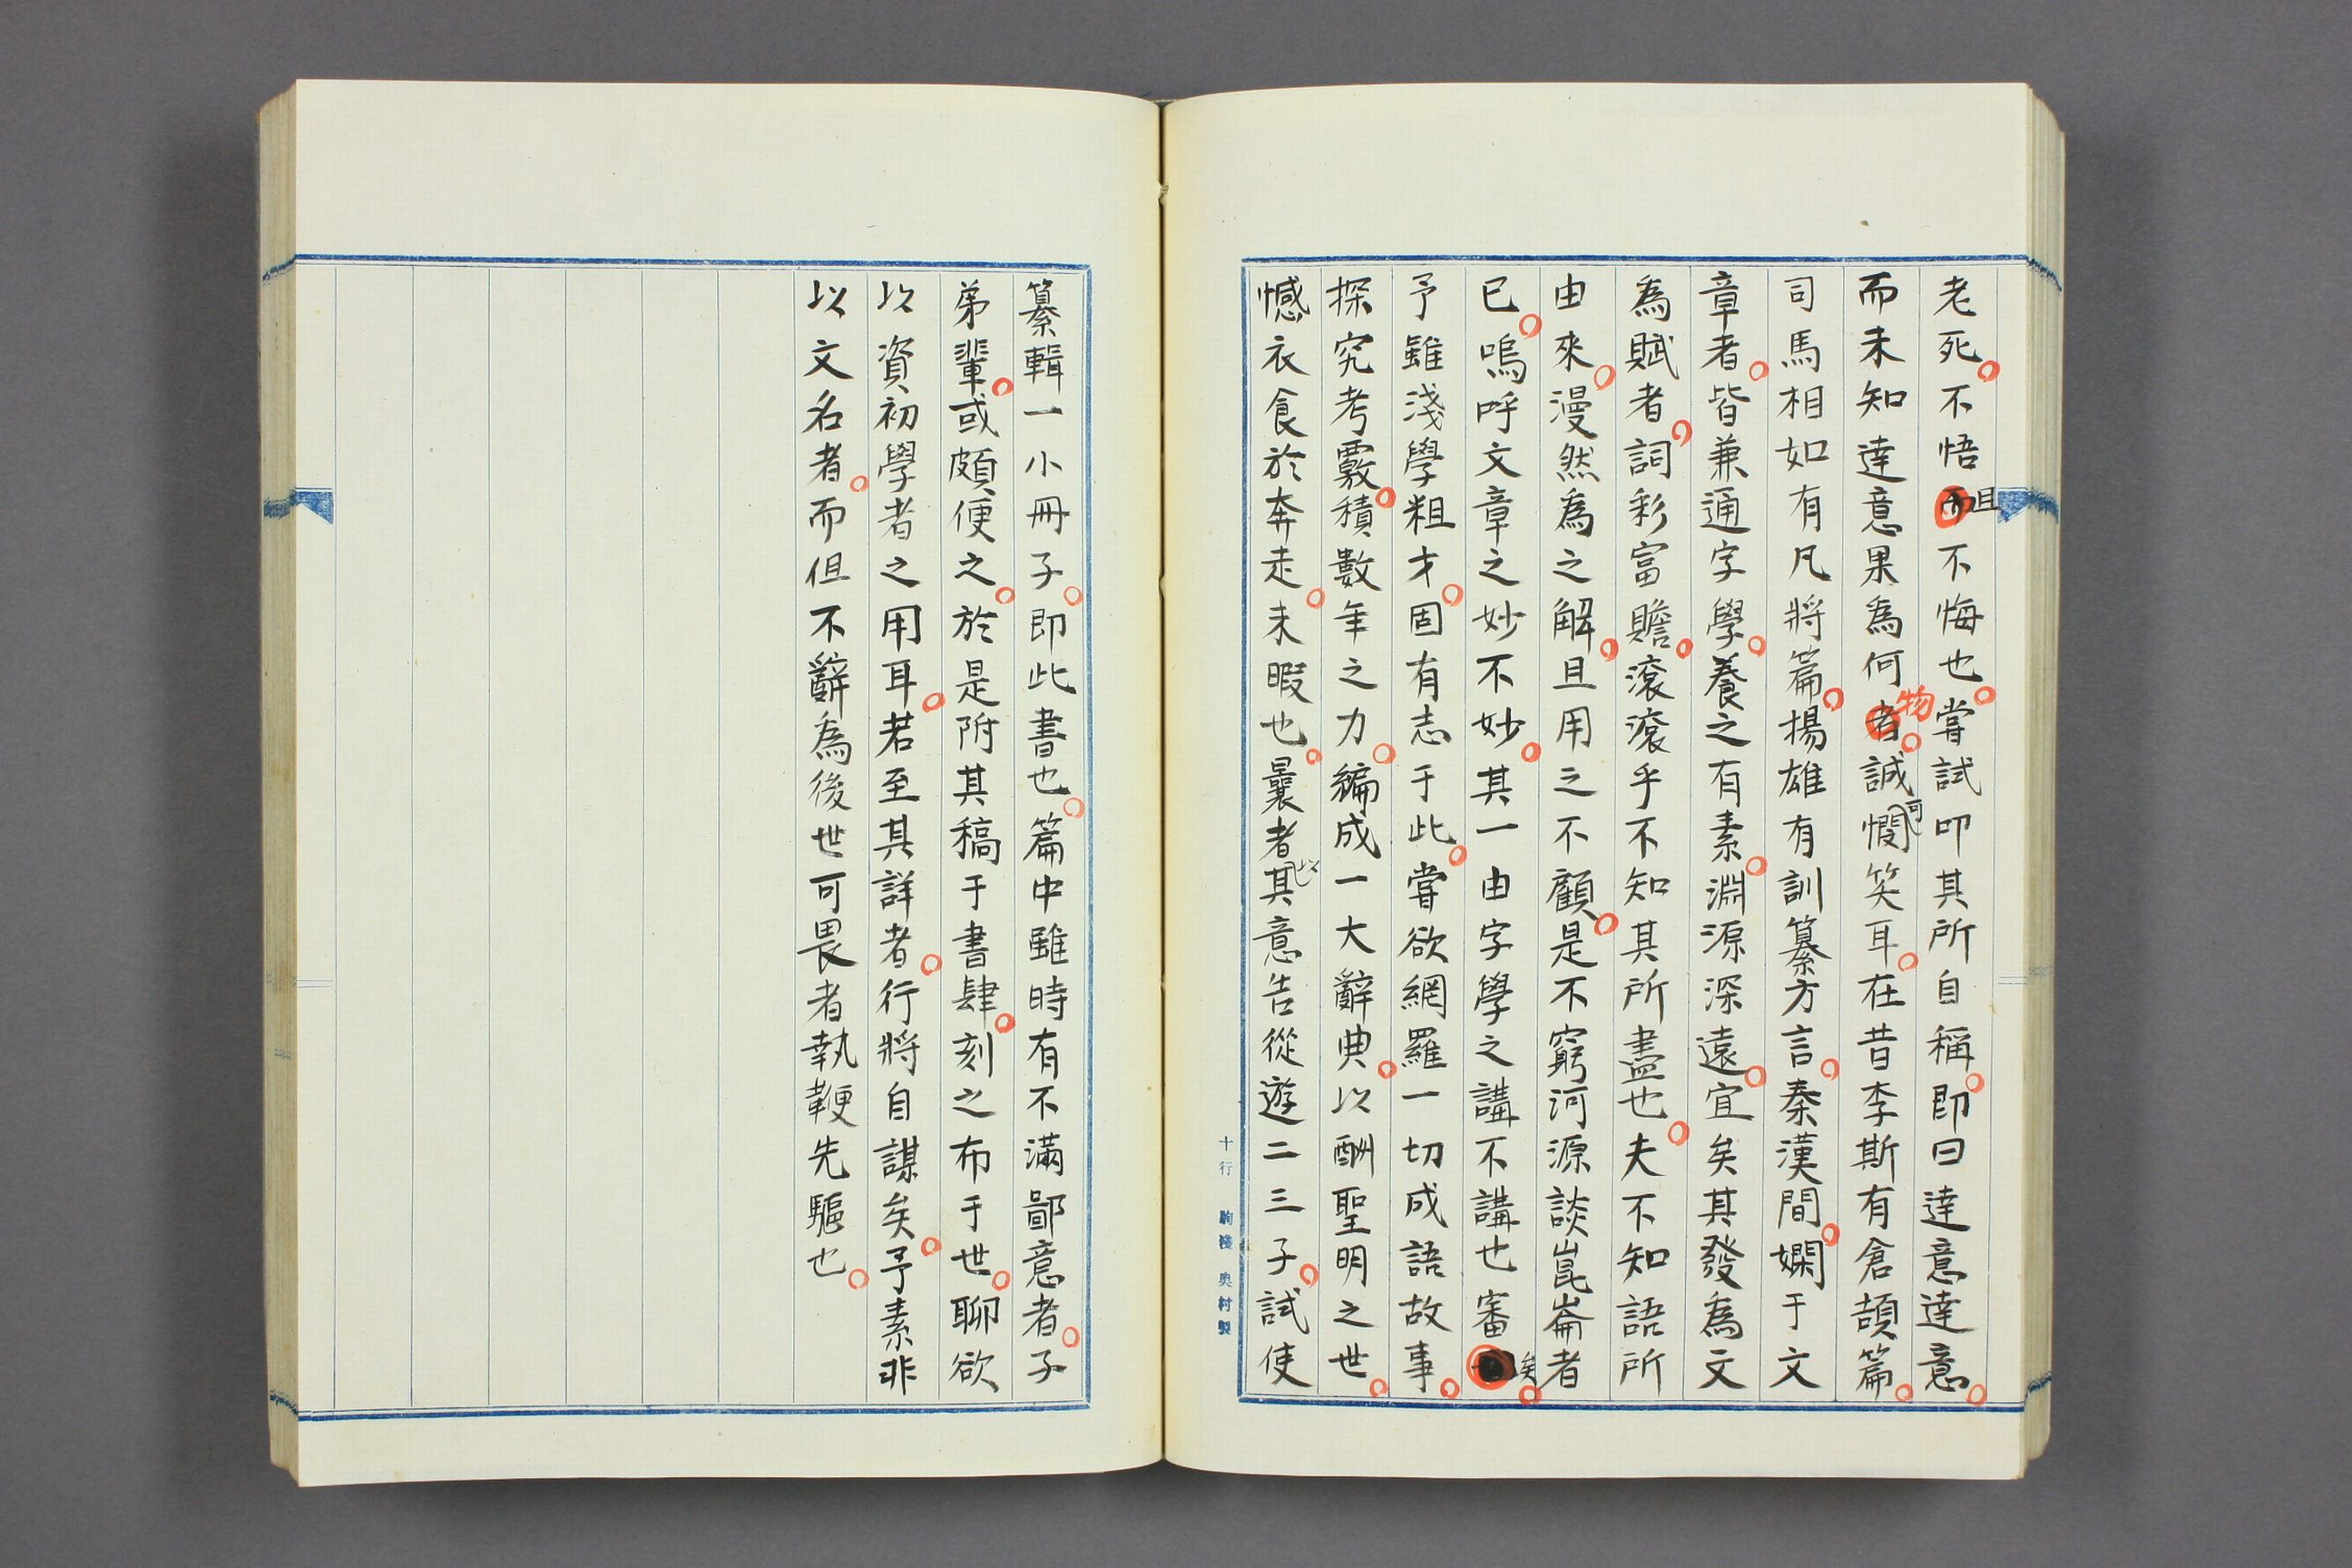 老死。不悟且不悔也。嘗試叩其所自稱。即曰達意達意。
而未知達意果為何物。誠可憫笑耳。在昔李斯有倉頡篇。
司馬相如有凡將篇。揚雄有訓纂方言。秦漢間。嫻于文
章者。皆兼通字學。養之有素。淵源深遠。宜矣其發為文
為賦者。詞彩富贍。滾滾乎不知其所盡也。夫不知語所
由來。漫然為之解。且用之不顧。是不窮河源談崑崙者
已。嗚呼文章之妙不妙。其一由字學之講不講也審矣。
予雖淺學粗才。固有志于此。嘗欲網羅一切成語故事。
探究考覈。積數年之力。編成一大辭典。以酬聖明之世。
憾衣食於奔走。未暇也。曩者以其意告從遊二三子。試使
十行 駒棧 奥村製
纂輯一小冊子。即此書也。篇中雖時有不滿鄙意者。子
弟輩。或頗便之。於是附其稿于書肆。刻之布于世。聊欲
以資初學者之用耳。若至其詳者。行將自謀矣。予素非
以文名者。而但不辭為後世可畏者執鞭先驅也。